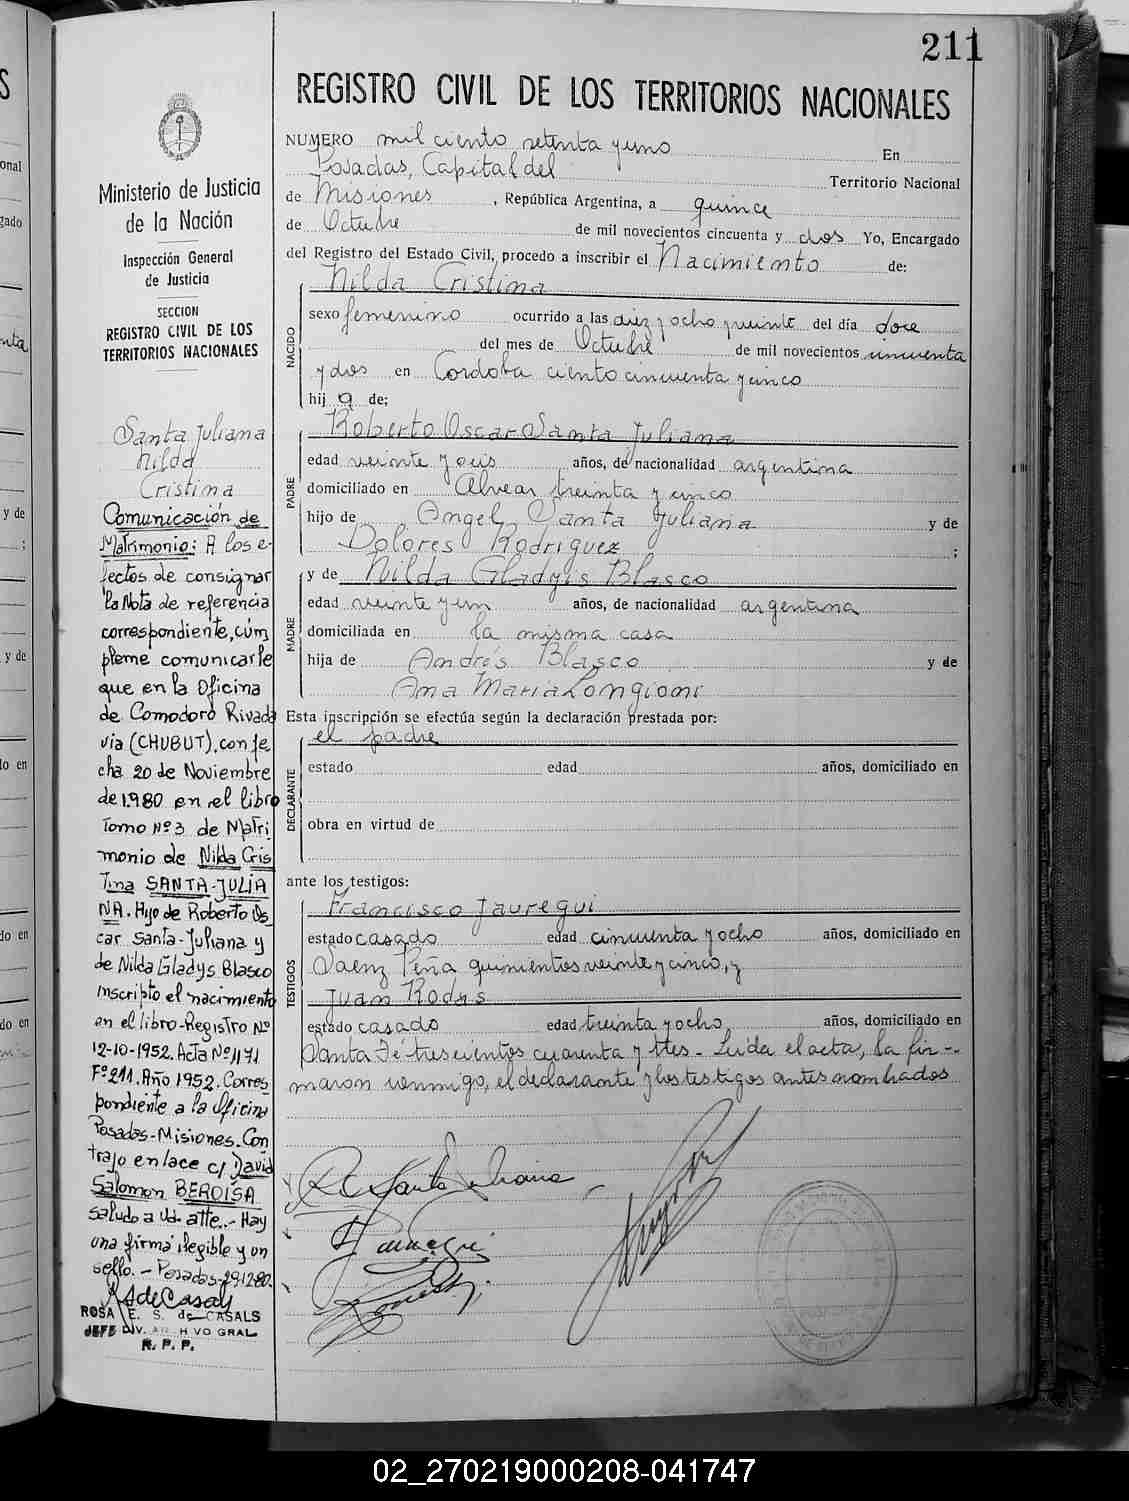 211
REGISTRO CIVIL DE LOS TERRITORIOS NACIONALES
Ministerio de Justicia
de la Nación
Inspección General
de Justicia
SECCION
REGISTRO CIVIL DE LOS
TERRITORIOS NACIONALES
Santa Juliana
Nilda
Cristina
Comunicación de
Matrimonio: A los e-
fectos de consignar
la Nota de referencia
correspondiente, cúm
pleme comunicarle
que en la Oficina
de Comodoro Rivada
via (CHUBUT), con fe
cha 20 de Noviembre
de 1.980 en el libro
Tomo Nº 3 de Matri
monio de Nilda Cris
tina SANTA-JULIA
NA. Hijo de Roberto Os
car Santa-Juliana y
de Nilda Gladys Blasco
inscripto el nacimiento
en el libro-Registro Nº
12-10-1952. Acta Nº 1171
Fº 211. Año 1952. Corres
pondiente a la Oficina
Posadas-Misiones. Con
trajo enlace c/ David
Salomon BEROISA
saludo a Ud. atte.- Hay
una firma ilegible y un
sello. - Posadas-29-12-80.
ROSA E. S. de CASALS
JEFE DIV. ARCHIVO GRAL
R. P. P.
NUMERO mil ciento setenta y uno En
Posadas, Capital del Territorio Nacional
de Misiones, República Argentina, a quince
de Octubre de mil novecientos cincuenta y dos Yo, Encargado
del Registro del Estado Civil, procedo a inscribir el Nacimiento de:
NACIDO
Nilda Cristina
sexo femenino ocurrido a las diez y ocho y veinte del día doce
del mes de Octubre de mil novecientos cincuenta
y dos en Cordoba ciento cincuenta y cinco
hij a de;
PADRE
Roberto Oscar Santa Juliana
edad veinte y seis años, de nacionalidad argentina
domiciliado en Alvear treinta y cinco
hijo de Angel Santa Juliana y de
Dolores Rodriguez ;
MADRE
y de Nilda Gladys Blasco
edad veinte y un años, de nacionalidad argentina
domiciliada en la misma casa
hija de Andrés Blasco y de
Ana Maria Longioni
Esta inscripción se efectúa según la declaración prestada por:
DECLARANTE
el padre
estado edad años, domiciliado en
obra en virtud de
ante los testigos:
TESTIGOS
Francisco Jauregui
estado casado edad cincuenta y ocho años, domiciliado en
Saenz Peña quinientos veinte y cinco, y
Juan Rodas
estado casado edad treinta y ocho años, domiciliado en
Santa Fé trescientos cuarenta y tres - Leída el acta, la fir-
maron conmigo, el declarante y los testigos antes nombrados
02_270219000208-041747